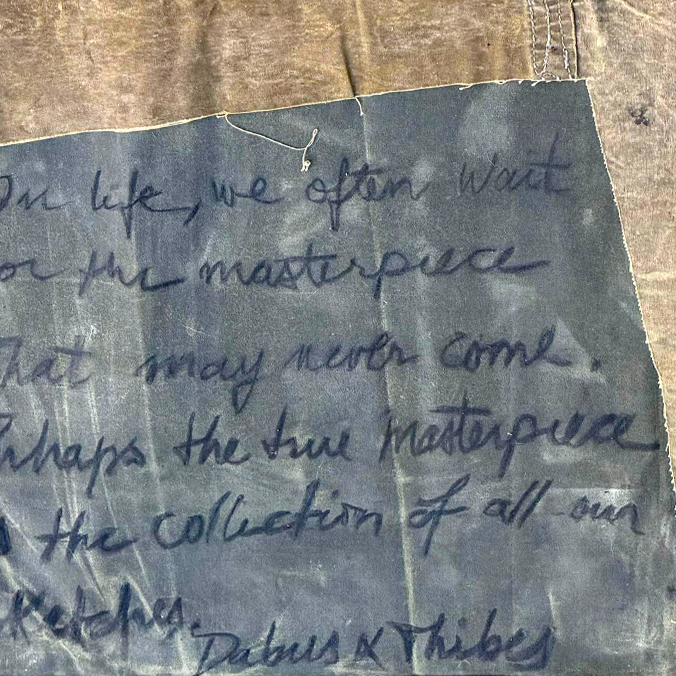 In life, we often wait
or the masterpiece
that may never come.
erhaps the true masterpiece
s the collection of all our
sketches.
Dabus & Thibes